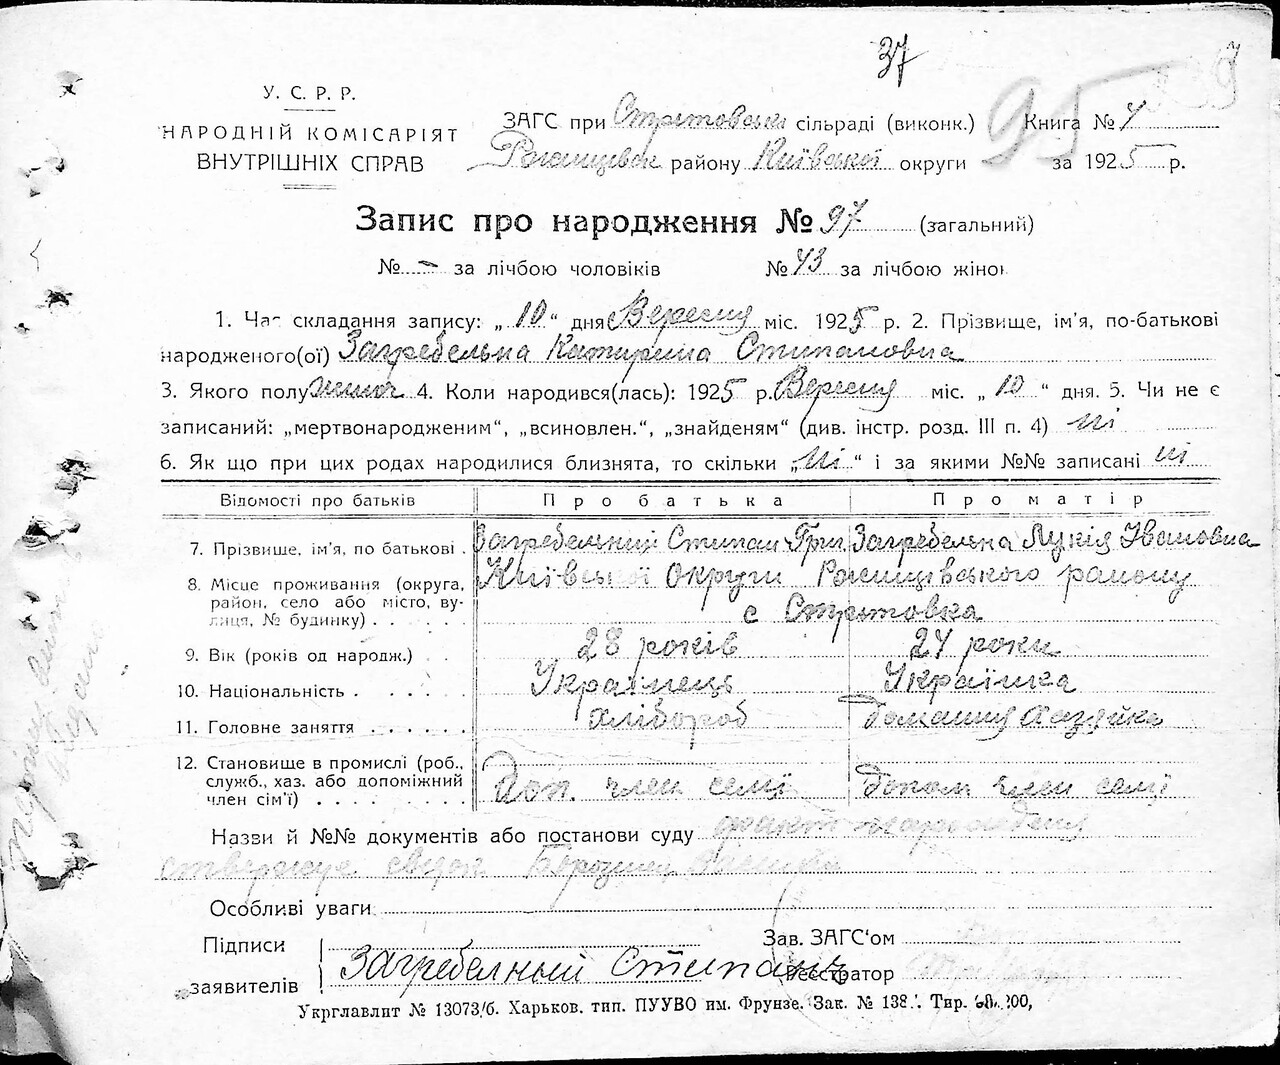 37
95
У. С. Р. Р.
НАРОДНІЙ КОМІСАРІЯТ
ВНУТРІШНІХ СПРАВ
ЗАГС при Стрітовській сільраді (виконк.) Книга № 4
району Київської округи за 1925 р.
Запис про народження № 97 (загальний)
№ – за лічбою чоловіків № 43 за лічбою жінок
1. Час складання запису: „10“ дня Вересня міс. 1925 р. 2. Прізвище, ім’я, по-батькові
народженого(ої) Загребельна Катирина Стипановна
3. Якого полу жіноч 4. Коли народився(лась): 1925 р. Вересня міс. „10“ дня. 5. Чи не є
записаний: „мертвонародженим“, „всиновлен.“, „знайденям“ (див. інстр. розд. III п. 4) ні
6. Як що при цих родах народилися близнята, то скільки „ні“ і за якими №№ записані ні
Відомості про батьків Про батька Про матір
7. Прізвище, ім’я, по батькові. Загребельний Стипан Григ Загребельна Лукія Івановна
8. Місце проживання (округа, Київської Округи Рожищівського району
район, село або місто, ву-
лиця, № будинку) . . . . . с Стрітовка
9. Вік (років од народж.) . . 28 років 24 роки
10. Національність . . . . . . Українець Українка
11. Головне заняття . . . . . . Хлібороб Домашня Хазяйка
12. Становище в промислі (роб.,
служб., хаз. або допоміжний Доп. член семї Допом член семї
член сім’ї) . . . . . . . .
Назви й №№ документів або постанови суду факт народження
ствержує
Особливі уваги
Підписи Зав. ЗАГС‘ом
заявителів Загребелный Стипанъ Реєстратор
Укрглавлит № 13073/б. Харьков. тип. ПУУВО им. Фрунзе. Зак. № 138 Тир.